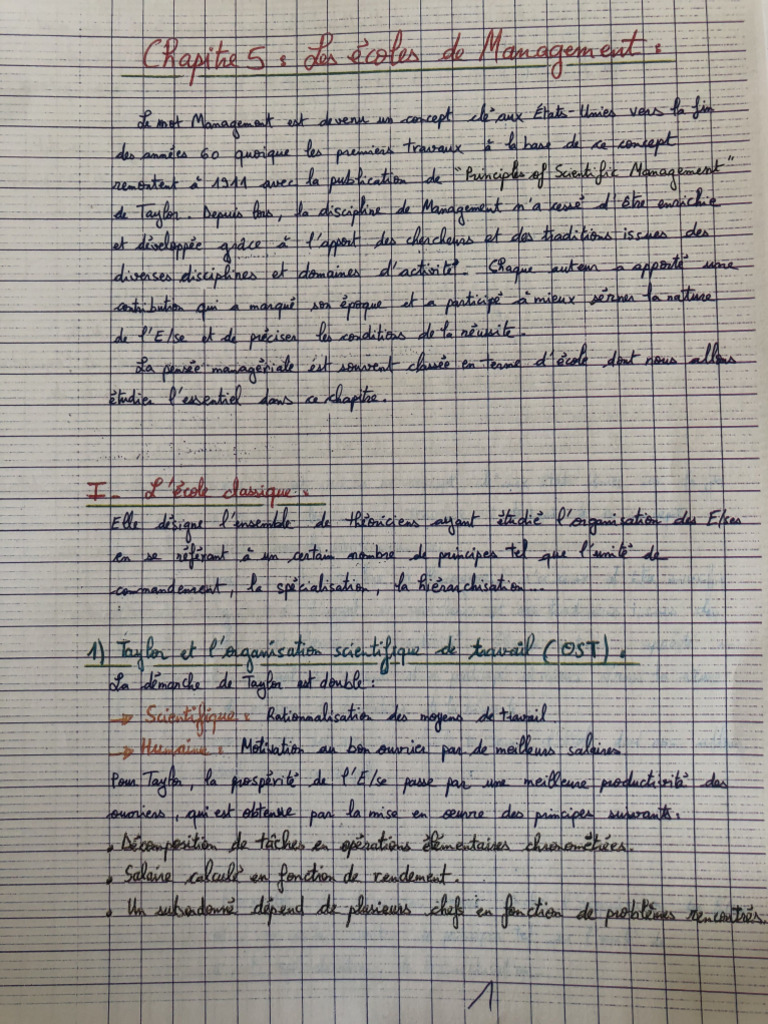 Chapitre 5 : Les écoles de Management :
Le mot Management est devenu un concept clé aux États-Unies vers la fin
des années 60 quoique les premiers travaux à la base de ce concept
remontent à 1911 avec la publication de "Principles of Scientific Management"
de Taylor. Depuis lors, la discipline de Management n'a cessé d'être enrichie
et développée grâce à l'apport des chercheurs et des traditions issues des
diverses disciplines et domaines d'activité. Chaque auteur a apporté une
contribution qui a marqué son époque et a participé à mieux sérner la nature
de l'E/se et de préciser les conditions de la réussite.
La pensée managériale ést souvent classée en terme d'école dont nous allons
étudier l'essentiel dans ce chapitre.
I - L'école classique :
Elle désigne l'ensemble de théoriciens ayant étudié l'organisation des E/ses
en se référant à un certain nombre de principes tel que l'unité de
commandement, la spécialisation, la hiérarchisation...
1) Taylor et l'organisation scientifique de travail (OST) :
La démarche de Taylor est double :
→ Scientifique : Rationnalisation des moyens de travail
→ Humaine : Motivation au bon ouvrier par de meilleurs salaires
Pour Taylor, la prospérité de l'E/se passe par une meilleure productivité des
ouvriers, qui est obtenue par la mise en œuvre des principes suivants :
. Décomposition de tâches en opérations élémentaires chronométrées.
. Salaire calculé en fonction de rendement.
. Un subordonné dépend de plusieurs chefs en fonction de problèmes rencontrés.
1